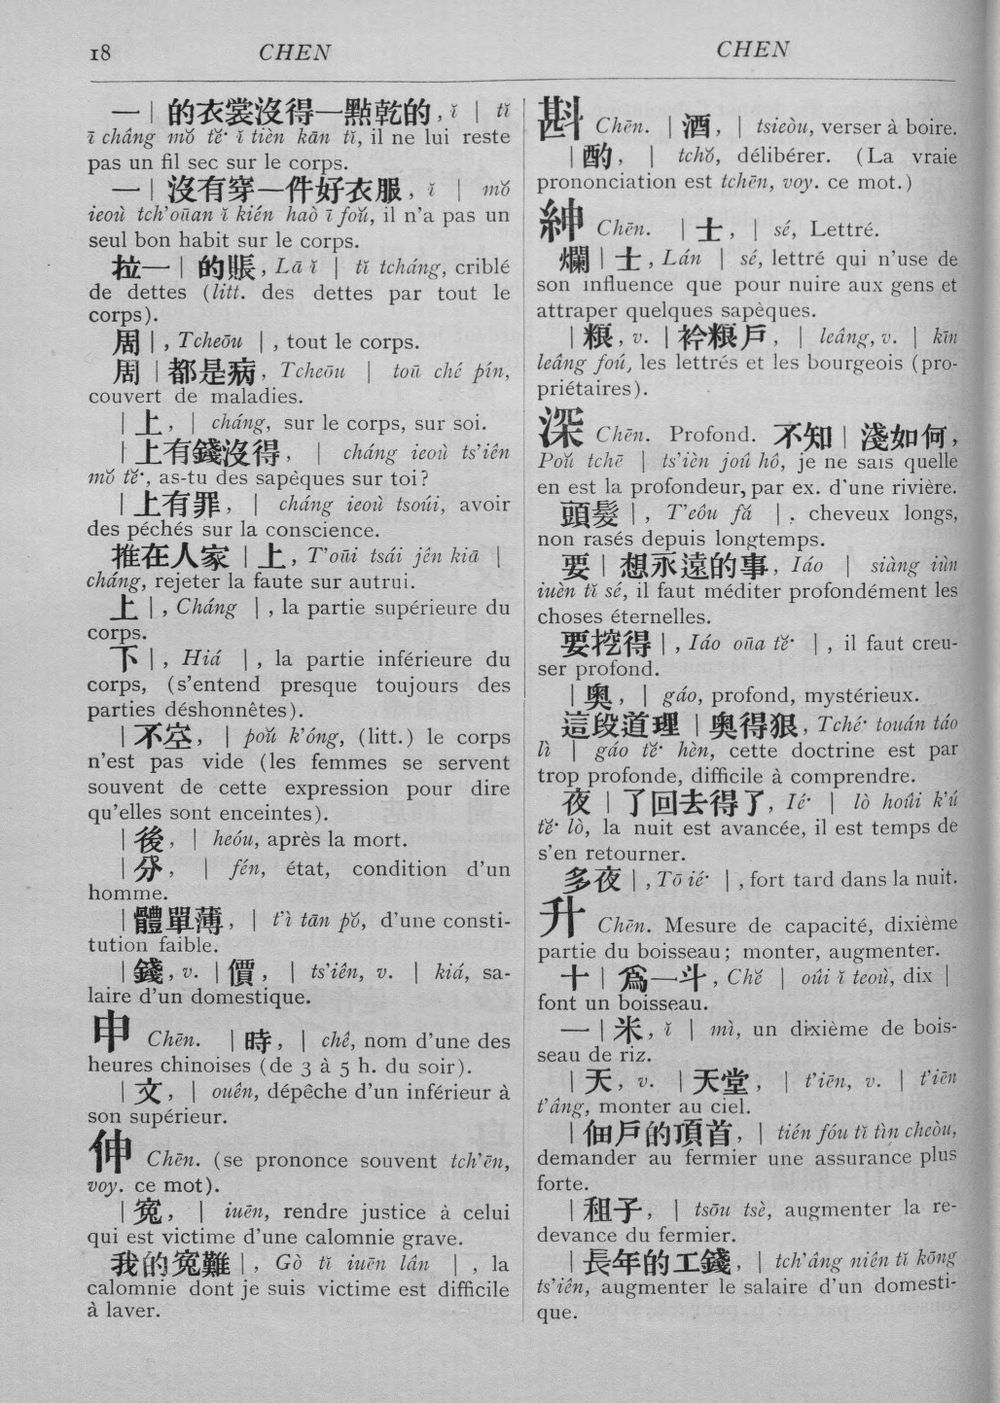 18 CHEN CHEN
一 | 的衣裳沒得一點乾的, ĭ | tĭ
ī châng mŏ tĕ· ĭ tièn kān tĭ, il ne lui reste
pas un fil sec sur le corps.
一 | 沒有穿一件好衣服, ĭ | mŏ
ieoù tch'oūan ĭ kién haò ī foŭ, il n'a pas un
seul bon habit sur le corps.
拉一 | 的賬, Lā ĭ | tĭ tcháng, criblé
de dettes (litt. des dettes par tout le
corps).
周 | , Tcheōu | , tout le corps.
周 | 都是病, Tcheōu | toū ché pín,
couvert de maladies.
| 上, | cháng, sur le corps, sur soi.
| 上有錢沒得, | cháng ieoù ts'iên
mŏ tĕ·, as-tu des sapèques sur toi?
| 上有罪, | cháng ieoù tsoúi, avoir
des péchés sur la conscience.
推在人家 | 上, T'oūi tsái jên kiā |
cháng, rejeter la faute sur autrui.
上 | , Cháng | , la partie supérieure du
corps.
下 | , Hiá | , la partie inférieure du
corps, (s'entend presque toujours des
parties déshonnêtes).
| 不空, | poŭ k'óng, (litt.) le corps
n'est pas vide (les femmes se servent
souvent de cette expression pour dire
qu'elles sont enceintes).
| 後, | heóu, après la mort.
| 分, | fén, état, condition d'un
homme.
| 體單薄, | t'ì tān pŏ, d'une consti-
tution faible.
| 錢, v. | 價, | ts'iên, v. | kiá, sa-
laire d'un domestique.
申 Chēn. | 時, | chê, nom d'une des
heures chinoises (de 3 à 5 h. du soir).
| 文, | ouên, dépêche d'un inférieur à
son supérieur.
伸 Chēn. (se prononce souvent tch'ēn,
voy. ce mot).
| 寃, | iuēn, rendre justice à celui
qui est victime d'une calomnie grave.
我的寃難 | , Gò tĭ iuēn lân | , la
calomnie dont je suis victime est difficile
à laver.
斟 Chēn. | 酒, | tsieòu, verser à boire.
| 酌, | tchŏ, délibérer. (La vraie
prononciation est tchēn, voy. ce mot.)
紳 Chēn. | 士, | sé, Lettré.
爛 | 士, Lán | sé, lettré qui n'use de
son influence que pour nuire aux gens et
attraper quelques sapèques.
| 粮, v. | 衿粮戶, | leâng, v. | kīn
leâng foú, les lettrés et les bourgeois (pro-
priétaires).
深 Chēn. Profond. 不知 | 淺如何,
Poŭ tchē | ts'ièn joû hô, je ne sais quelle
en est la profondeur, par ex. d'une rivière.
頭髮 | , T'eôu fá | , cheveux longs,
non rasés depuis longtemps.
要 | 想永遠的事, Iáo | siàng iùn
iuèn tĭ sé, il faut méditer profondément les
choses éternelles.
要挖得 | , Iáo oūa tĕ· | , il faut creu-
ser profond.
| 奥, | gáo, profond, mystérieux.
這段道理 | 奥得狠, Tché· touán táo
lì | gáo tĕ· hèn, cette doctrine est par
trop profonde, difficile à comprendre.
夜 | 了回去得了, Ié· | lò hoûi k'ú
tĕ· lò, la nuit est avancée, il est temps de
s'en retourner.
多夜 | , Tō ié· | , fort tard dans la nuit.
升 Chēn. Mesure de capacité, dixième
partie du boisseau; monter, augmenter.
十 | 爲一斗, Chĕ | oûi ĭ teoù, dix |
font un boisseau.
一 | 米, ĭ | mì, un dixième de bois-
seau de riz.
| 天, v. | 天堂, | t'iēn, v. | t'iēn
t'âng, monter au ciel.
| 佃戶的頂首, | tién fóu tĭ tìn cheòu,
demander au fermier une assurance plus
forte.
| 租子, | tsōu tsè, augmenter la re-
devance du fermier.
| 長年的工錢, | tch'âng niên tĭ kōng
ts'iên, augmenter le salaire d'un domesti-
que.